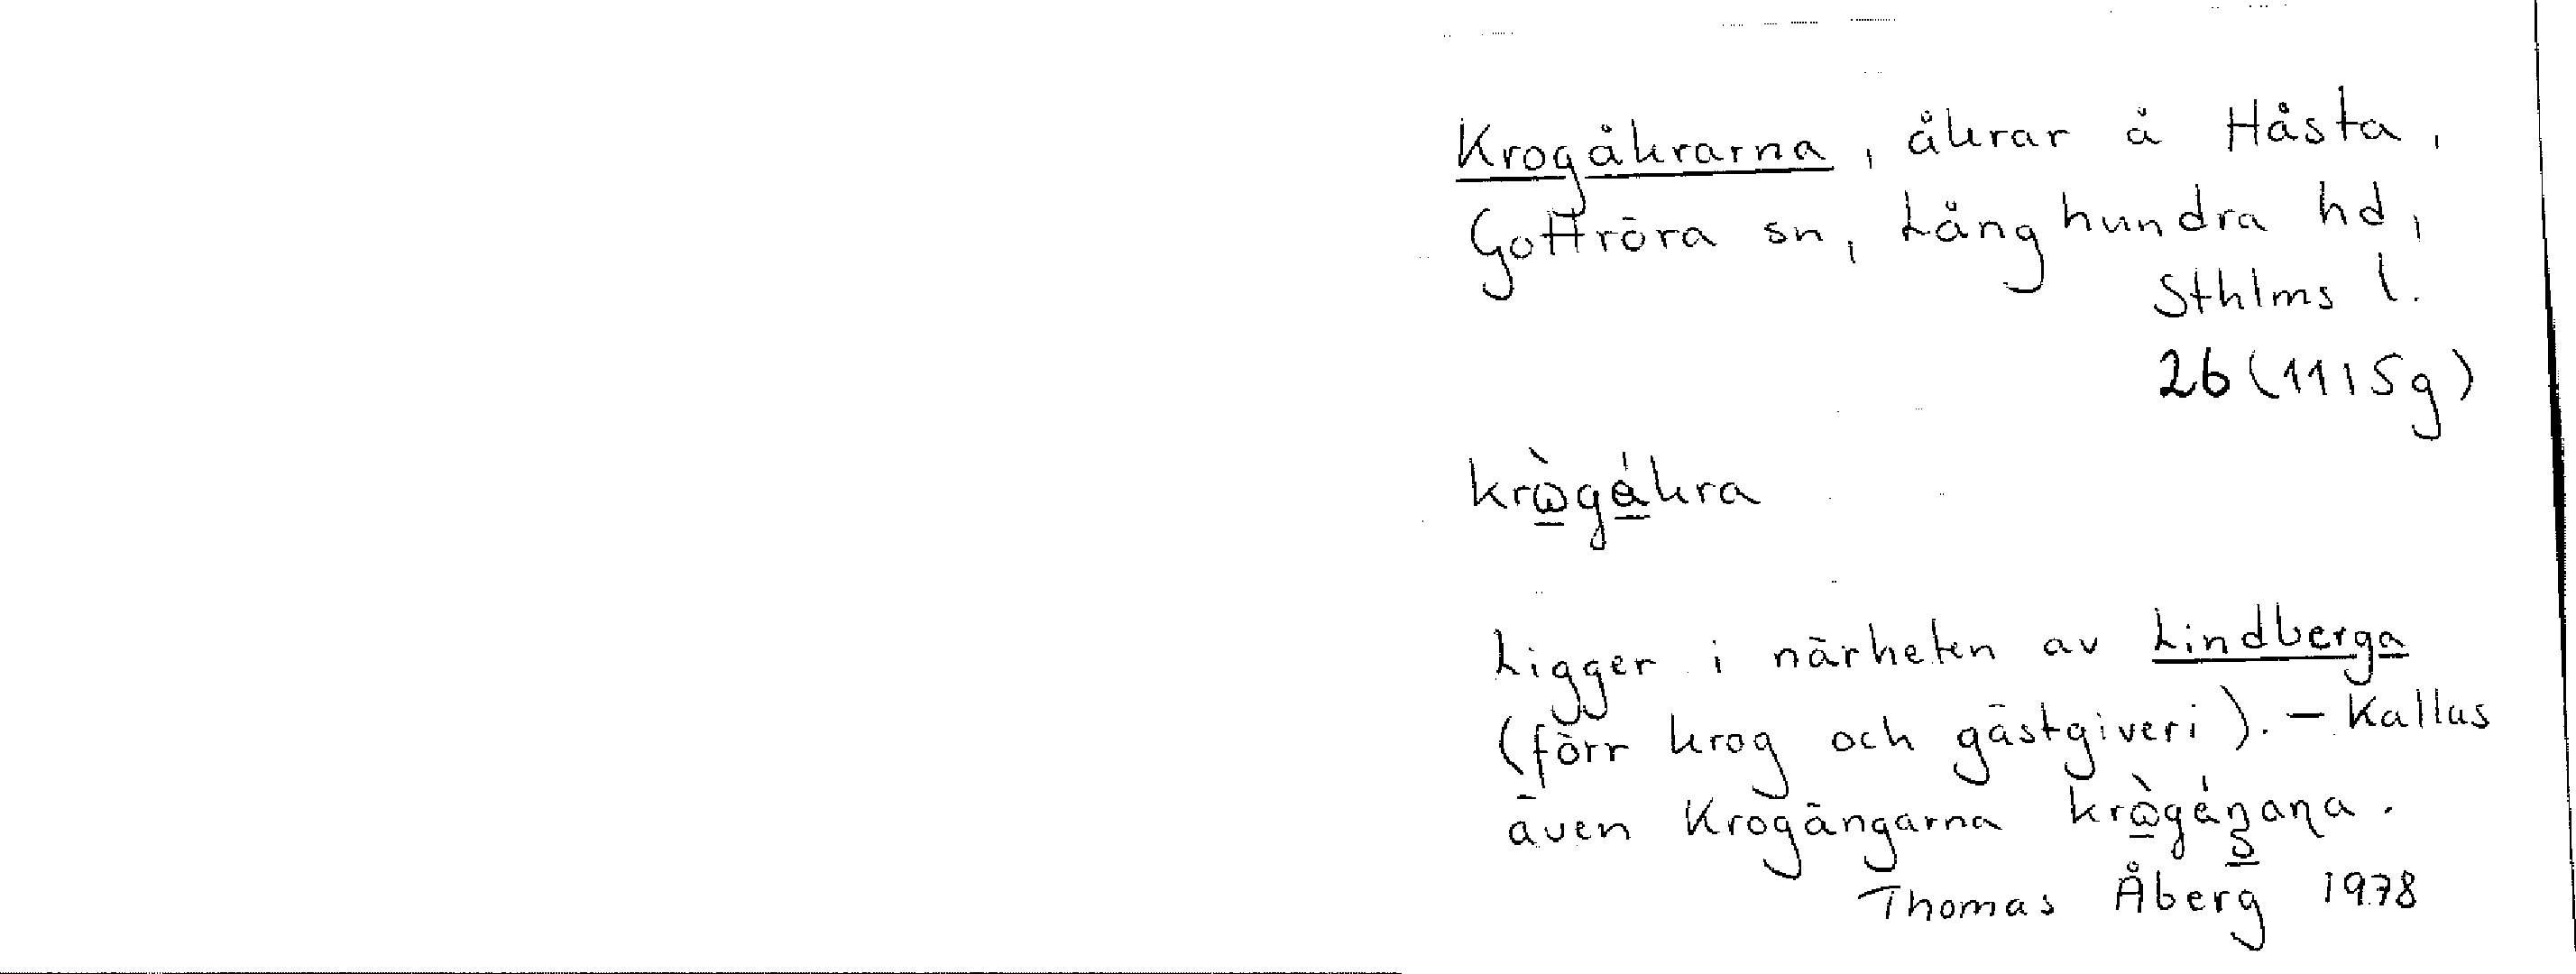 Krogåkrarna, åkrar å Håsta,
Gottröra sn, Långhundra hd,
Sthlms l.
26 (1115g)
krὼgákra
Ligger i närheten av Lindberga
(förr krog och gästgiveri). – Kallas
även Krogängarna
Thomas Åberg 1978